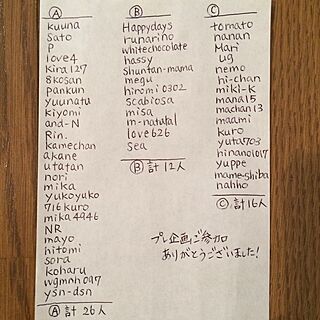 Ⓐ
kuuna
sato
P
love4
kira127
8kosan
pankun
yuunata
kiyomi
and-N
Rin.
kamechan
akane
utatan
nori
mika
yukoyuko
716kuro
mika4446
NR
mayo
hitomi
sora
koharu
wgmnh047
ysn-dsn
Ⓐ 計26人
Ⓑ
Happydays
runarino
whitechocolate
hassy
Shuntan-mama
megu
hiromi0302
scabiosa
misa
m-natatal
love626
sea
Ⓑ 計12人
Ⓒ
tomato
nanan
Mari
ug
nemo
hi-chan
miki-K
mana15
machan13
maami
kuro
yuta703
hinano1017
yuppe
mame-shiba
nahho
Ⓒ 計16人
プレ企画ご参加
ありがとうございました!